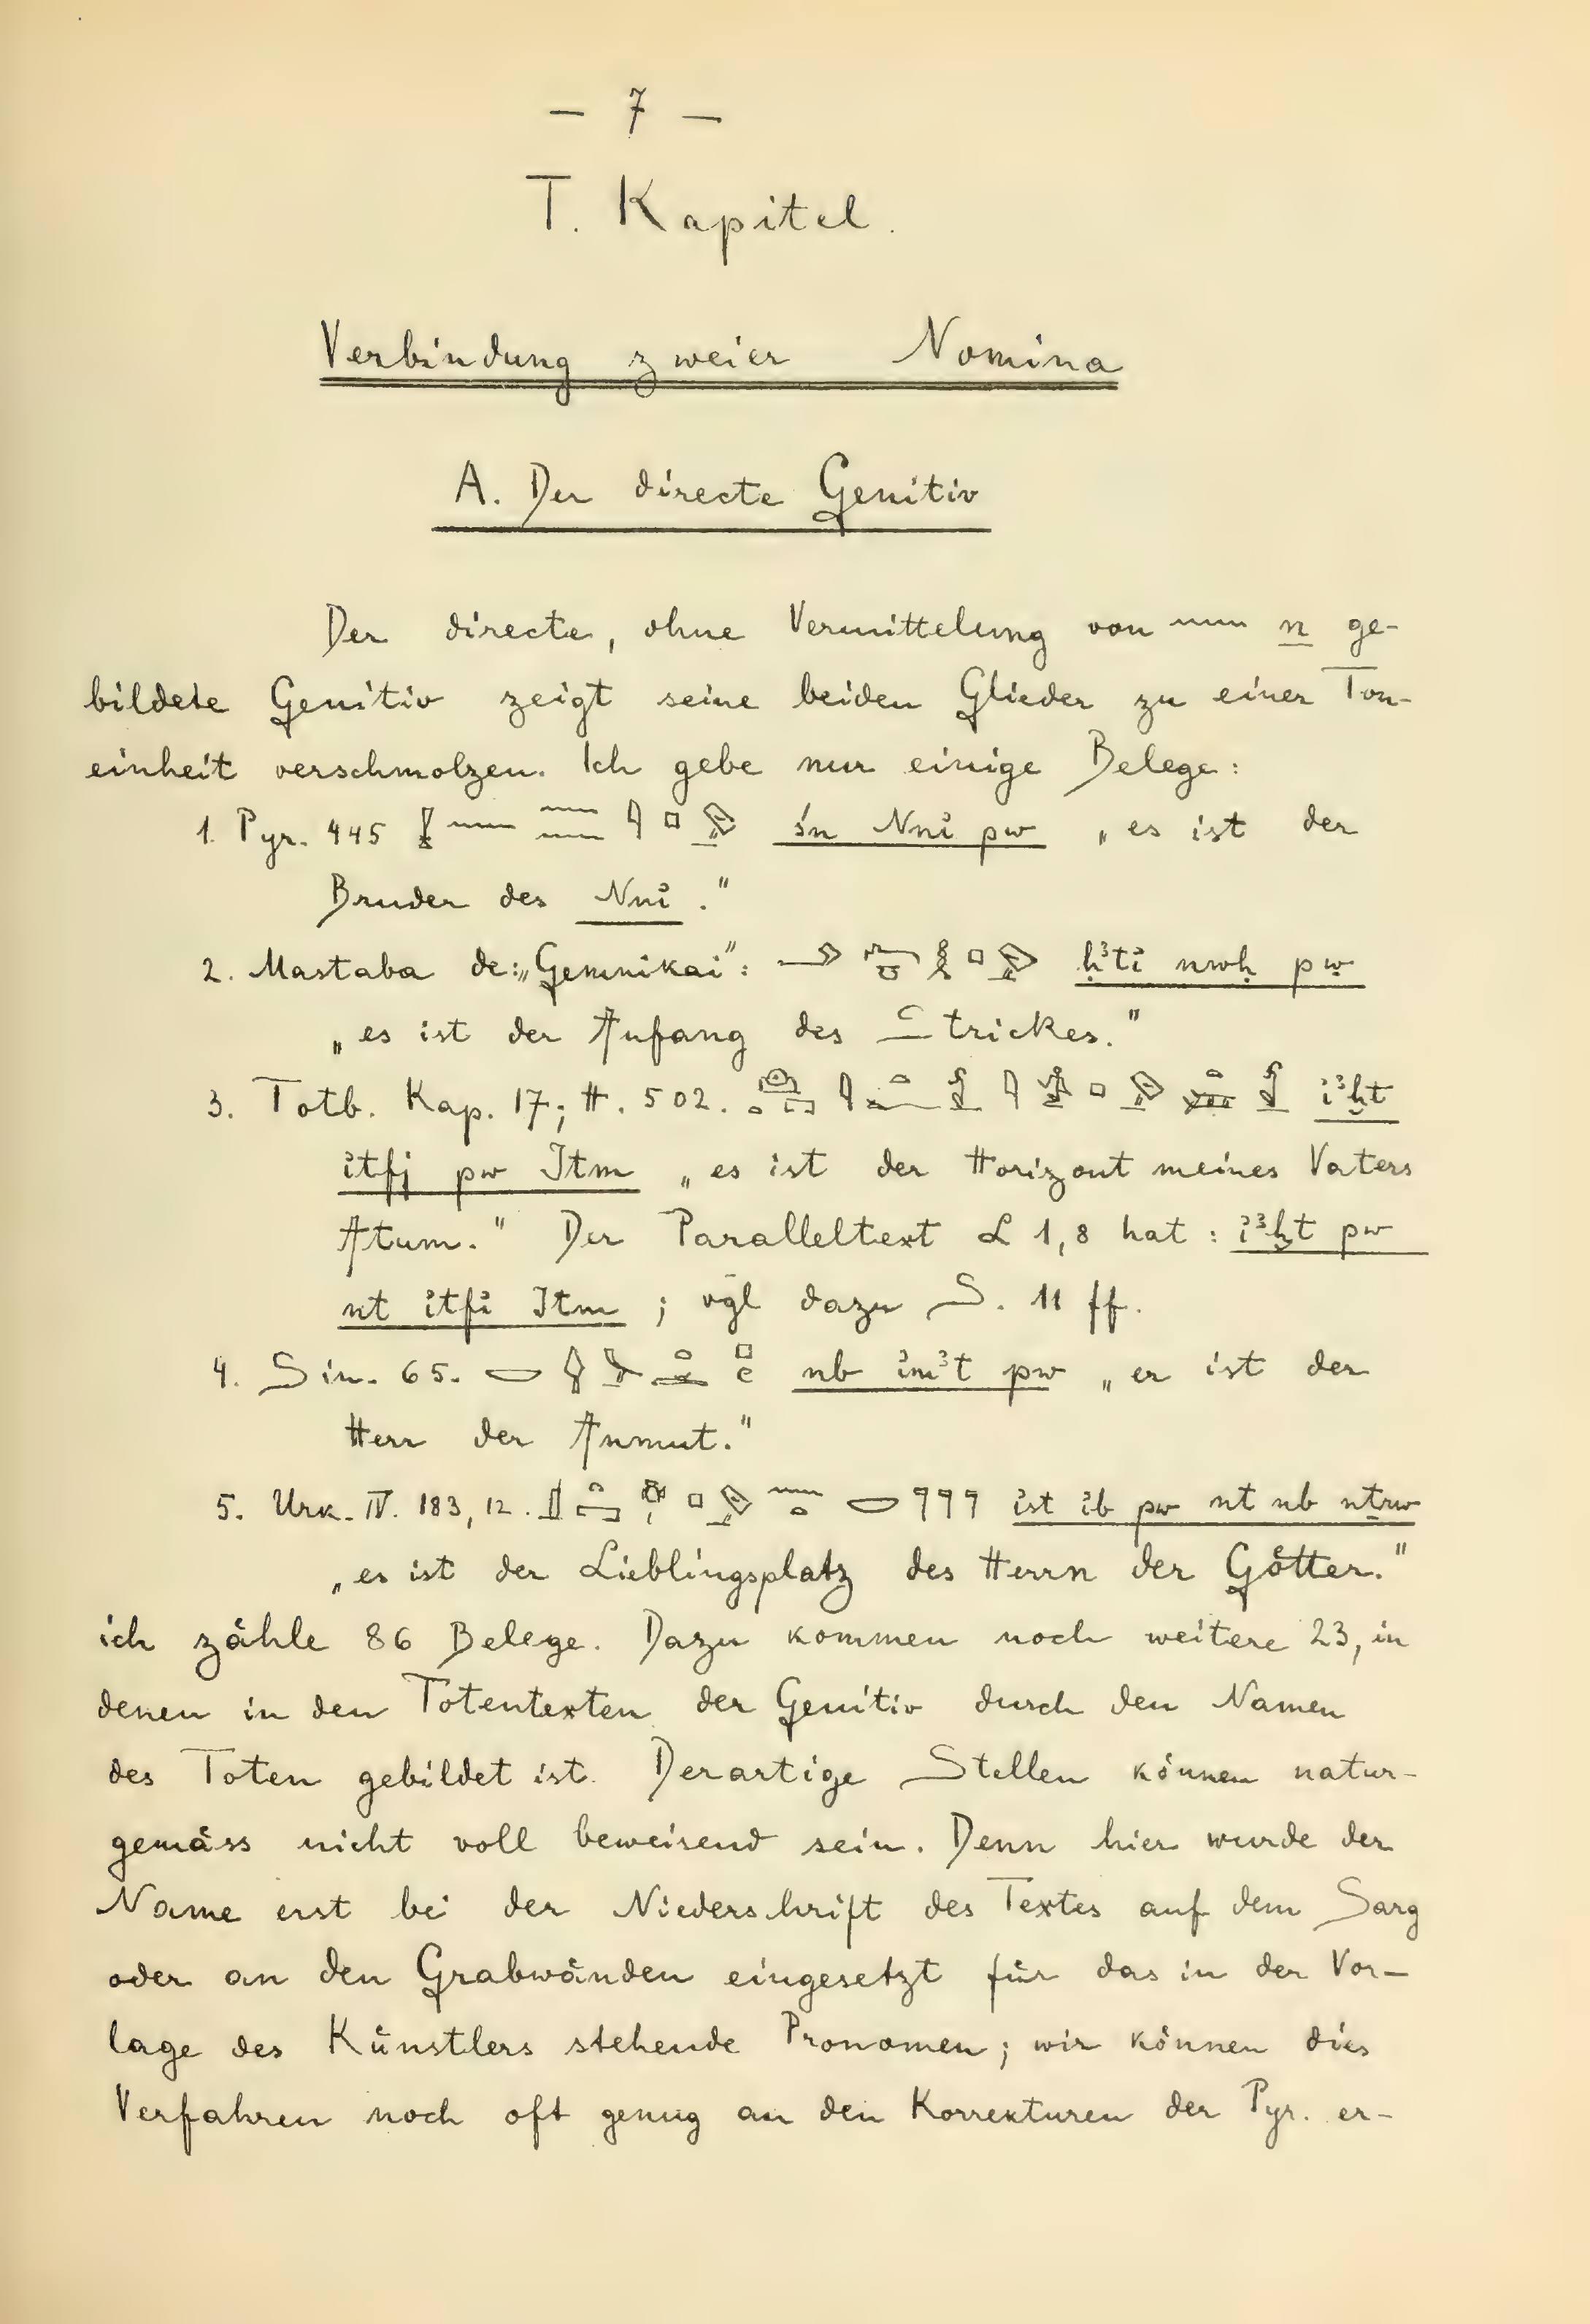 – 7 –
I. Kapitel.
Verbindung zweier Nomina
A. Der directe Genitiv
Der directe, ohne Vermittelung von 𓈖 n ge-
bildete Genitiv zeigt seine beiden Glieder zu einer Ton-
einheit verschmolzen. Ich gebe nur einige Belege:
1. Pyr. 445 śn Nni҆ pw „es ist der
Bruder des Nni҆."
2. Mastaba de: „Gemnikai": ḥꜣti҆ nwḥ pw
„es ist der Anfang des Strickes."
3. Totb. Kap. 17; H. 502. i҆ꜣḫt
i҆tfj pw Itm „es ist der Horizont meines Vaters
Atum." Der Paralleltext L 1,8 hat: i҆ꜣḫt pw
nt i҆tfi҆ Itm; vgl dazu S. 11 ff.
4. Sin. 65. nb i҆mꜣt pw „er ist der
Herr der Anmut."
5. Urk. IV. 183, 12. i҆st i҆b pw nt nb nṯrw
„es ist der Lieblingsplatz des Herrn der Götter."
ich zähle 86 Belege. Dazu kommen noch weitere 23, in
denen in den Totentexten der Genitiv durch den Namen
des Toten gebildet ist. Derartige Stellen können natur-
gemäss nicht voll beweisend sein. Denn hier wurde der
Name erst bei der Niederschrift des Textes auf dem Sarg
oder an den Grabwänden eingesetzt für das in der Vor-
lage des Künstlers stehende Pronomen; wir können dies
Verfahren noch oft genug an den Korrekturen der Pyr. er-